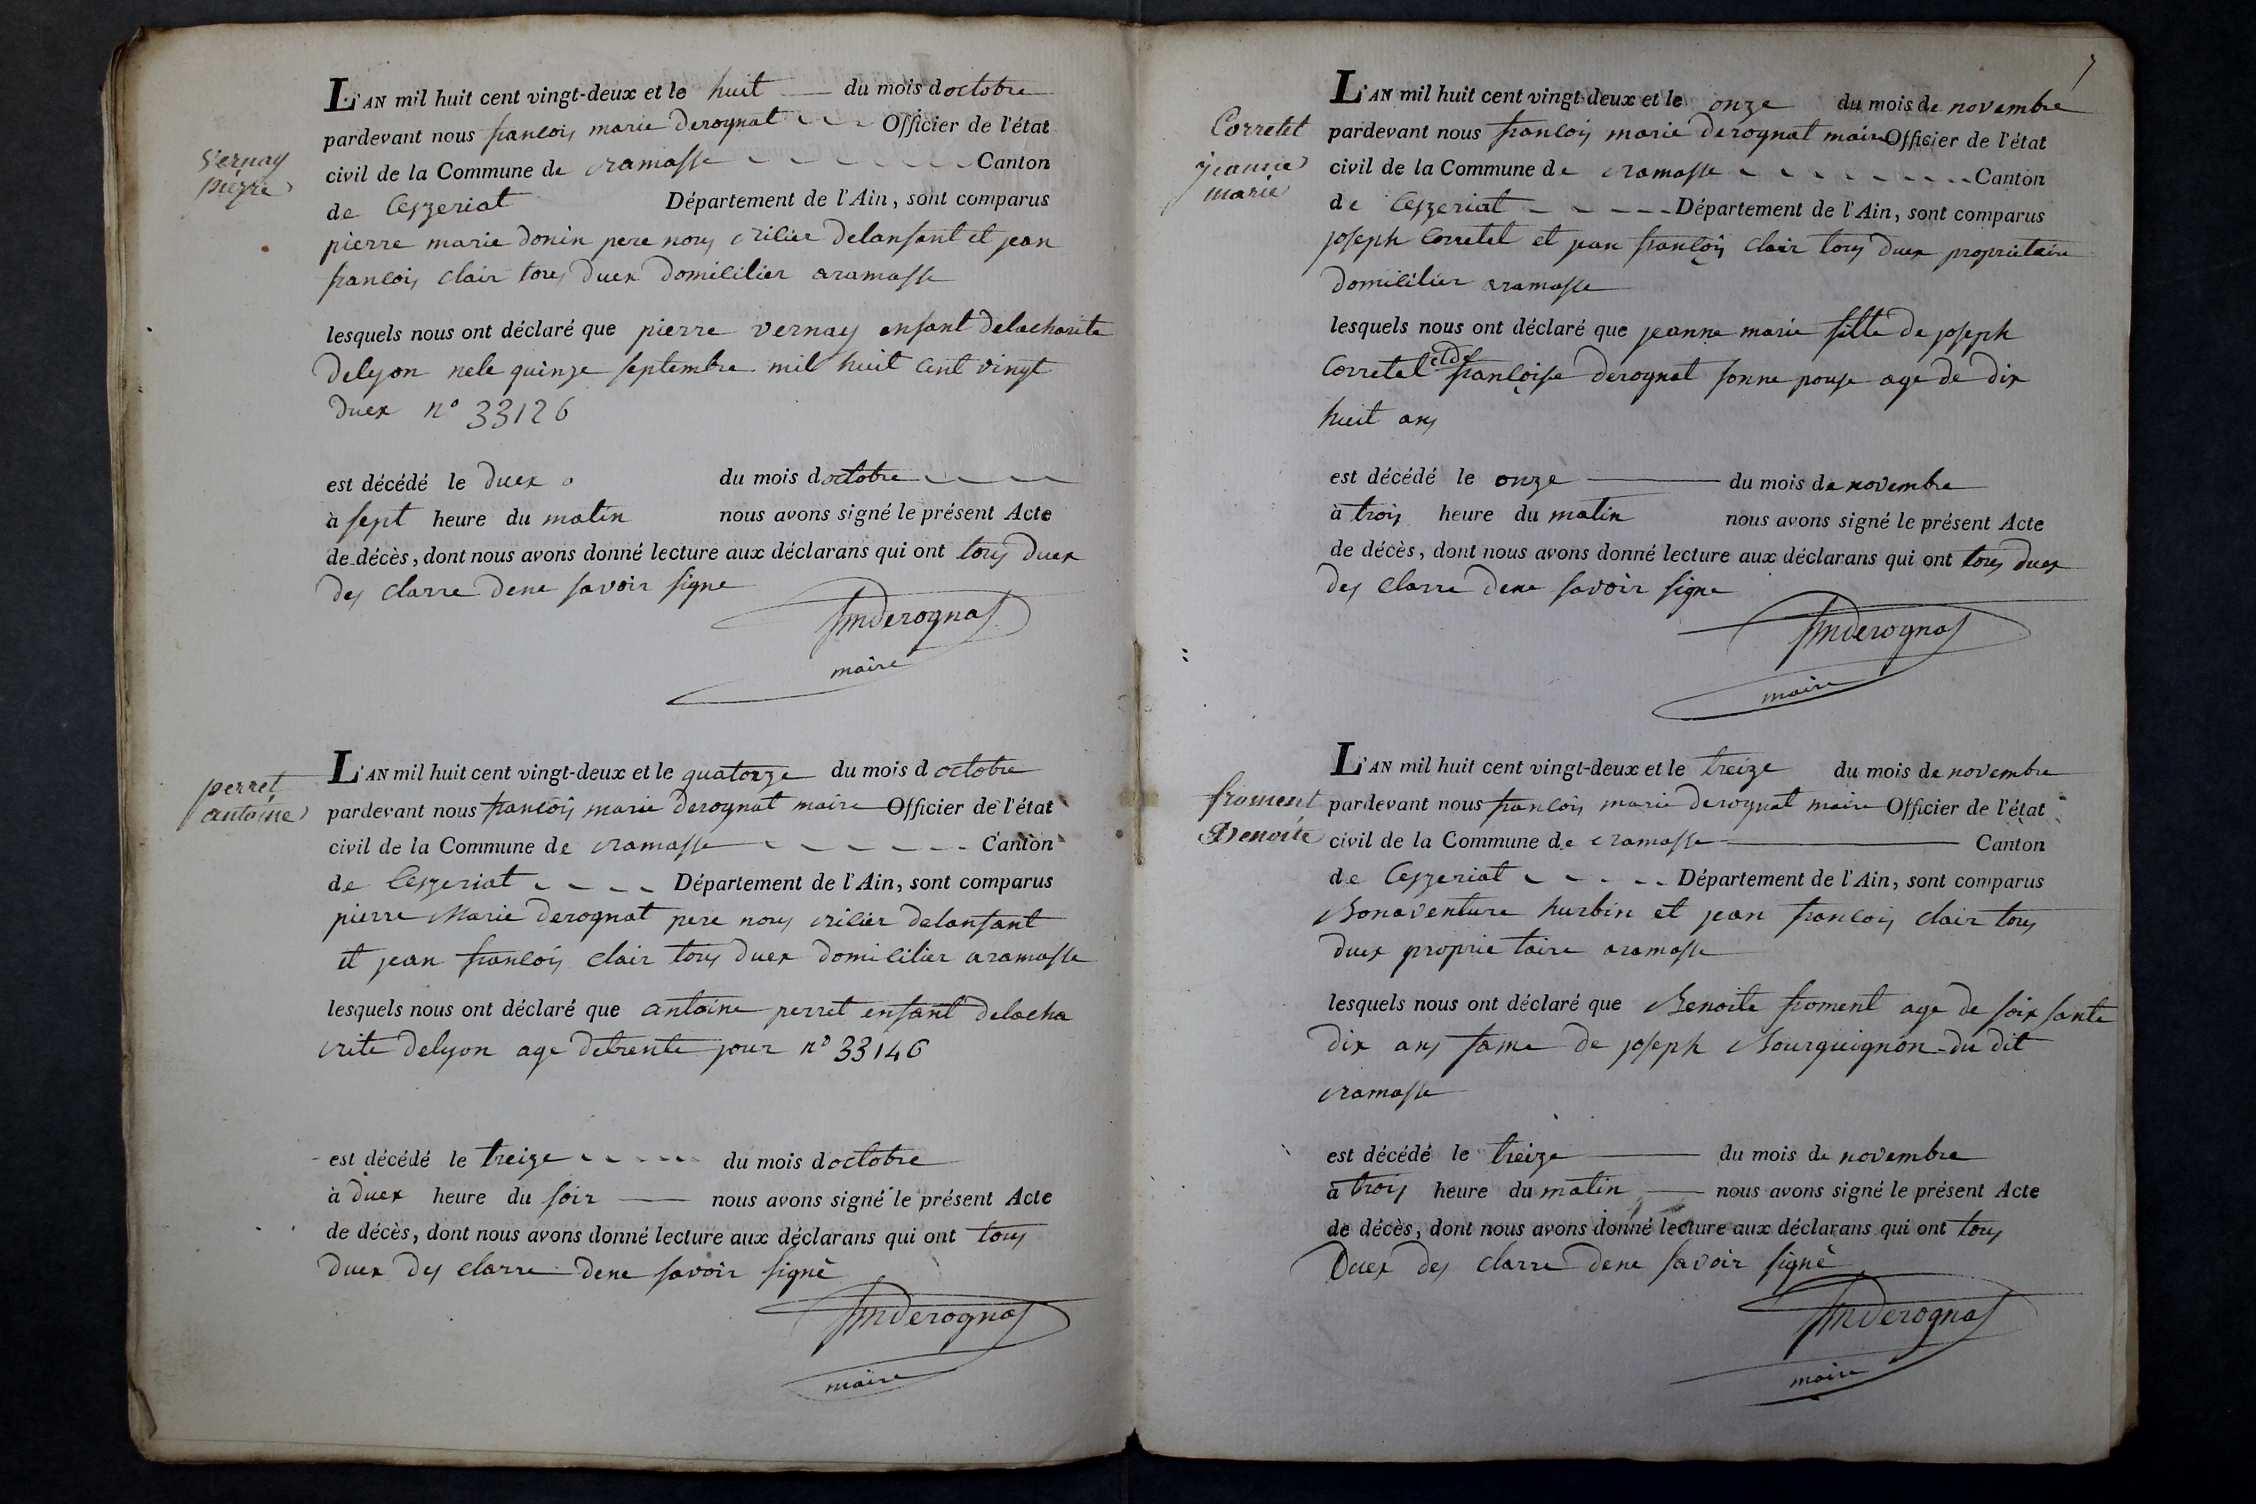 Vernay
pierre
L'AN mil huit cent vingt-deux et le huit du mois doctobre
pardevant nous francois marie derognat Officier de l'état
civil de la Commune de ramasse Canton
de Ceyzeriat Département de l'Ain, sont comparus
pierre marie donin pere nous ricier delanfant et jean
francois clair tous duex domicilier aramasse
lesquels nous ont déclaré que pierre vernay enfant delacharite
delyon nele quinze septembre mil huit cent vingt
duex n° 33126
est décédé le duex du mois doctobre
à sept heure du matin nous avons signé le présent Acte
de décès, dont nous avons donné lecture aux déclarans qui ont tous duex
des clarre dene savoir signe
fmderognat
maire
perret
antoine
L'AN mil huit cent vingt-deux et le quatorze du mois d octobre
pardevant nous francois marie derognat maire Officier de l'état
civil de la Commune de ramasse Canton
de Ceyzeriat Département de l'Ain, sont comparus
pierre Marie derognat pere nous ricier delanfant
et jean francois clair tous duex domicilier aramasse
lesquels nous ont déclaré que antoine perret enfant delacha
rite delyon age detrente jour n° 33146
est décédé le treize du mois doctobre
à duex heure du soir nous avons signé le présent Acte
de décès, dont nous avons donné lecture aux déclarans qui ont tous
duex des clarre dene savoir signé
fmderognat
maire
7
Corretet
jeanne
marie
L'AN mil huit cent vingt-deux et le onze du mois de novembre
pardevant nous francois marie derognat maire Officier de l'état
civil de la Commune de ramasse Canton
de Ceyzeriat Département de l'Ain, sont comparus
joseph corretet et jean françois clair tous duex proprietaire
domicilier aramasse
lesquels nous ont déclaré que jeanne marie fille de joseph
Corretet et de françoise derognat sonne pouse age de dix
huit ans
est décédé le onze du mois de novembre
à trois heure du matin nous avons signé le présent Acte
de décès, dont nous avons donné lecture aux déclarans qui ont tous duex
des clarre dene savoir signe
fmderognat
maire
froment
Benoite
L'AN mil huit cent vingt-deux et le treize du mois de novembre
pardevant nous francois marie derognat maire Officier de l'état
civil de la Commune de ramasse Canton
de Ceyzeriat Département de l'Ain, sont comparus
Bonaventure hurbin et jean francois clair tous
duex proprie taire aramasse
lesquels nous ont déclaré que Benoite froment age de soix sante
dix ans fame de joseph Bourguignon du dit
ramasse
est décédé le treize du mois de novembre
à trois heure du matin nous avons signé le présent Acte
de décès, dont nous avons donné lecture aux déclarans qui ont tous
Duex des clarre dene savoir signé
fmderognat
maire